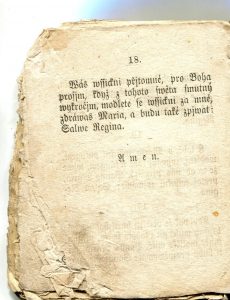 18.
Wás wssickni pějtomné, pro Boha
prosjm, když z tohoto swěta smutný
wykročjm, modlete se wssickni za mně,
zdráwas Maria, a budu také zpjwat:
Salwe Regina.
Amen.